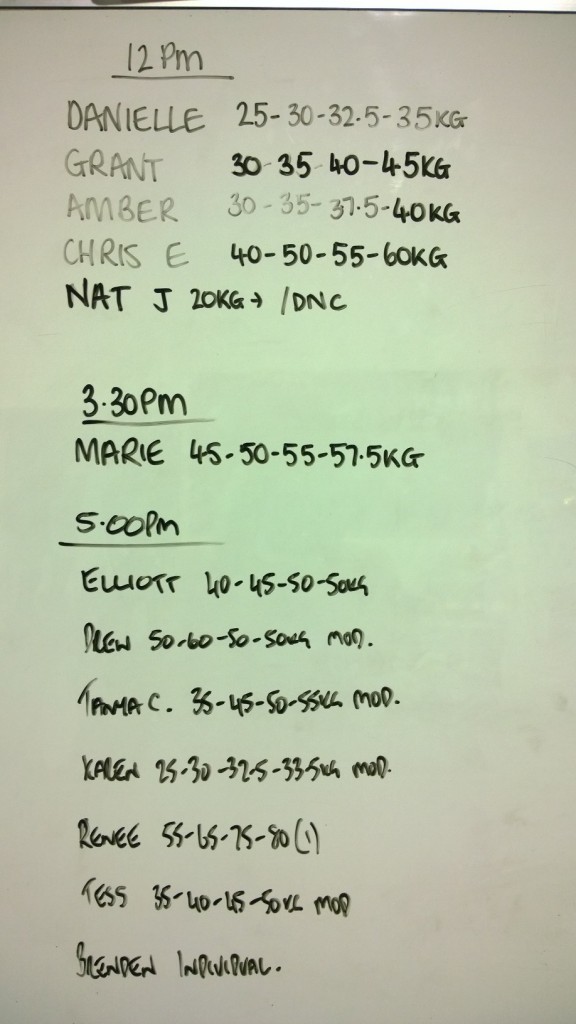 12 Pm
DANIELLE 25-30-32.5-35KG
GRANT 30-35-40-45KG
AMBER 30-35-37.5-40KG
CHRIS E 40-50-55-60KG
NAT J 20KG → /DNC
3.30pm
MARIE 45-50-55-57.5KG
5.00pm
ELLIOTT 40-45-50-50KG
DREW 50-60-50-50KG MOD.
C. 35-45-50-55KG MOD.
KAREN 25-30-32.5-33.5KG MOD.
RENEE 55-65-75-80(1)
TESS 35-40-45-50KG MOD
BRENDEN INDIVIDUAL.